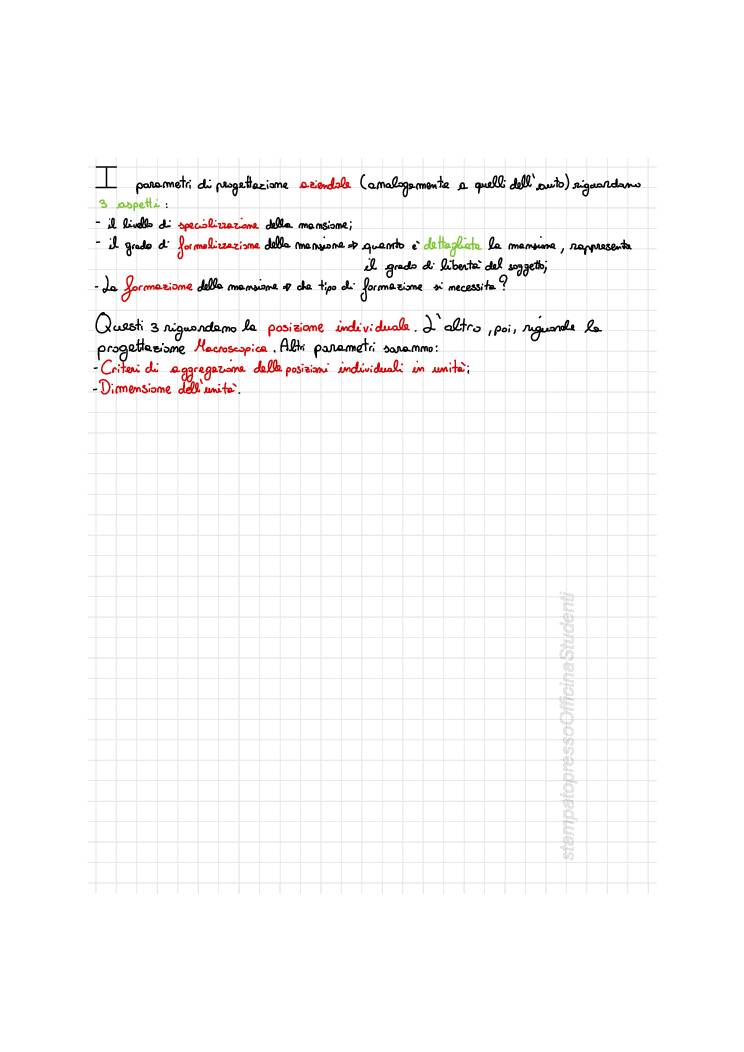 I parametri di progettazione aziendale (analogamente a quelli dell'auto) riguardano
3 aspetti:
- il livello di specializzazione della mansione;
- il grado di formalizzazione della mansione => quanto è dettagliata la mansione, rappresenta
il grado di libertà del soggetto;
- La formazione della mansione => che tipo di formazione si necessita?
Questi 3 riguardano la posizione individuale. L'altro, poi, riguarda la
progettazione Macroscopica. Altri parametri saranno:
- Criteri di aggregazione delle posizioni individuali in unità;
- Dimensione dell'unità.
stampatopressoOfficinaStudenti